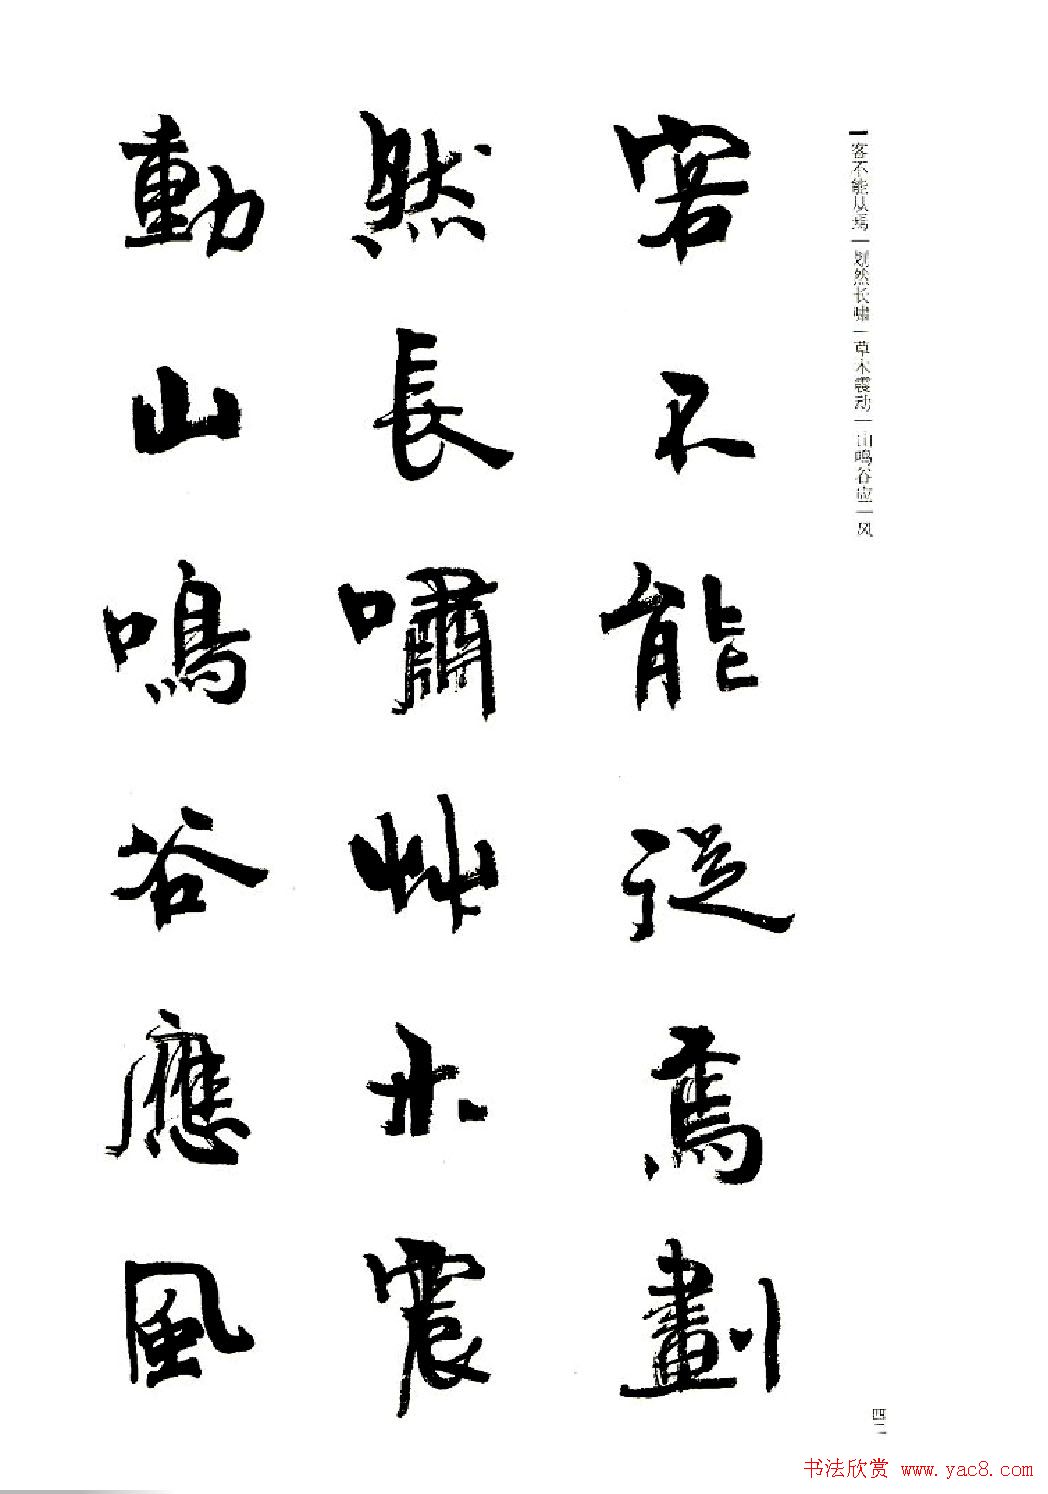 客不能从焉|划然长啸|草木震动|山鸣谷应|风
客不能從焉劃
然長嘯艸木震
動山鳴谷應風
四二
书法欣赏 www.yac8.com